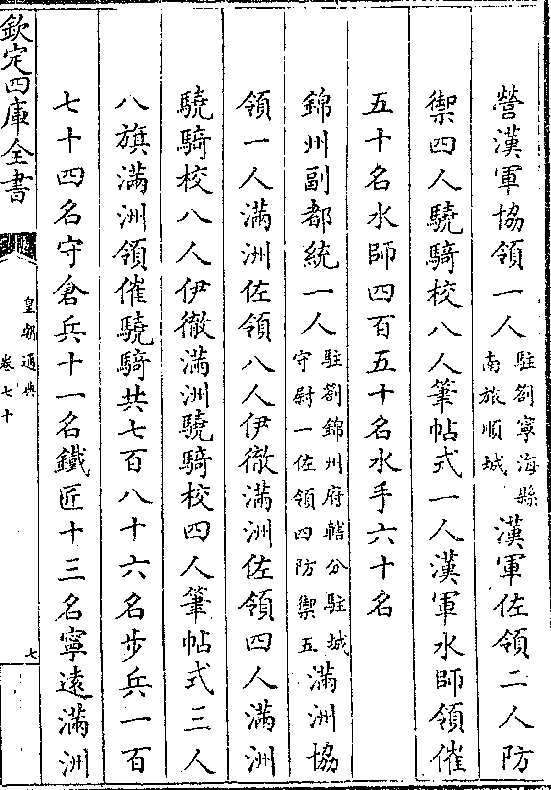 營漢軍協領一人駐劄寧海縣南旅順城漢軍佐領二人防
禦四人驍騎校八人筆帖式一人漢軍水師領催
五十名水師四百五十名水手六十名
錦州副都統一人駐劄錦州府轄分駐城守尉一佐領四防禦五滿洲協
領一人滿洲佐領八人伊徹滿洲佐領四人滿洲
驍騎校八人伊徹滿洲驍騎校四人筆帖式三人
八旗滿洲領催驍騎共七百八十六名步兵一百
七十四名守倉兵十一名鐵匠十三名寧遠滿洲
欽定四庫全書
皇朝通典
卷七十
七